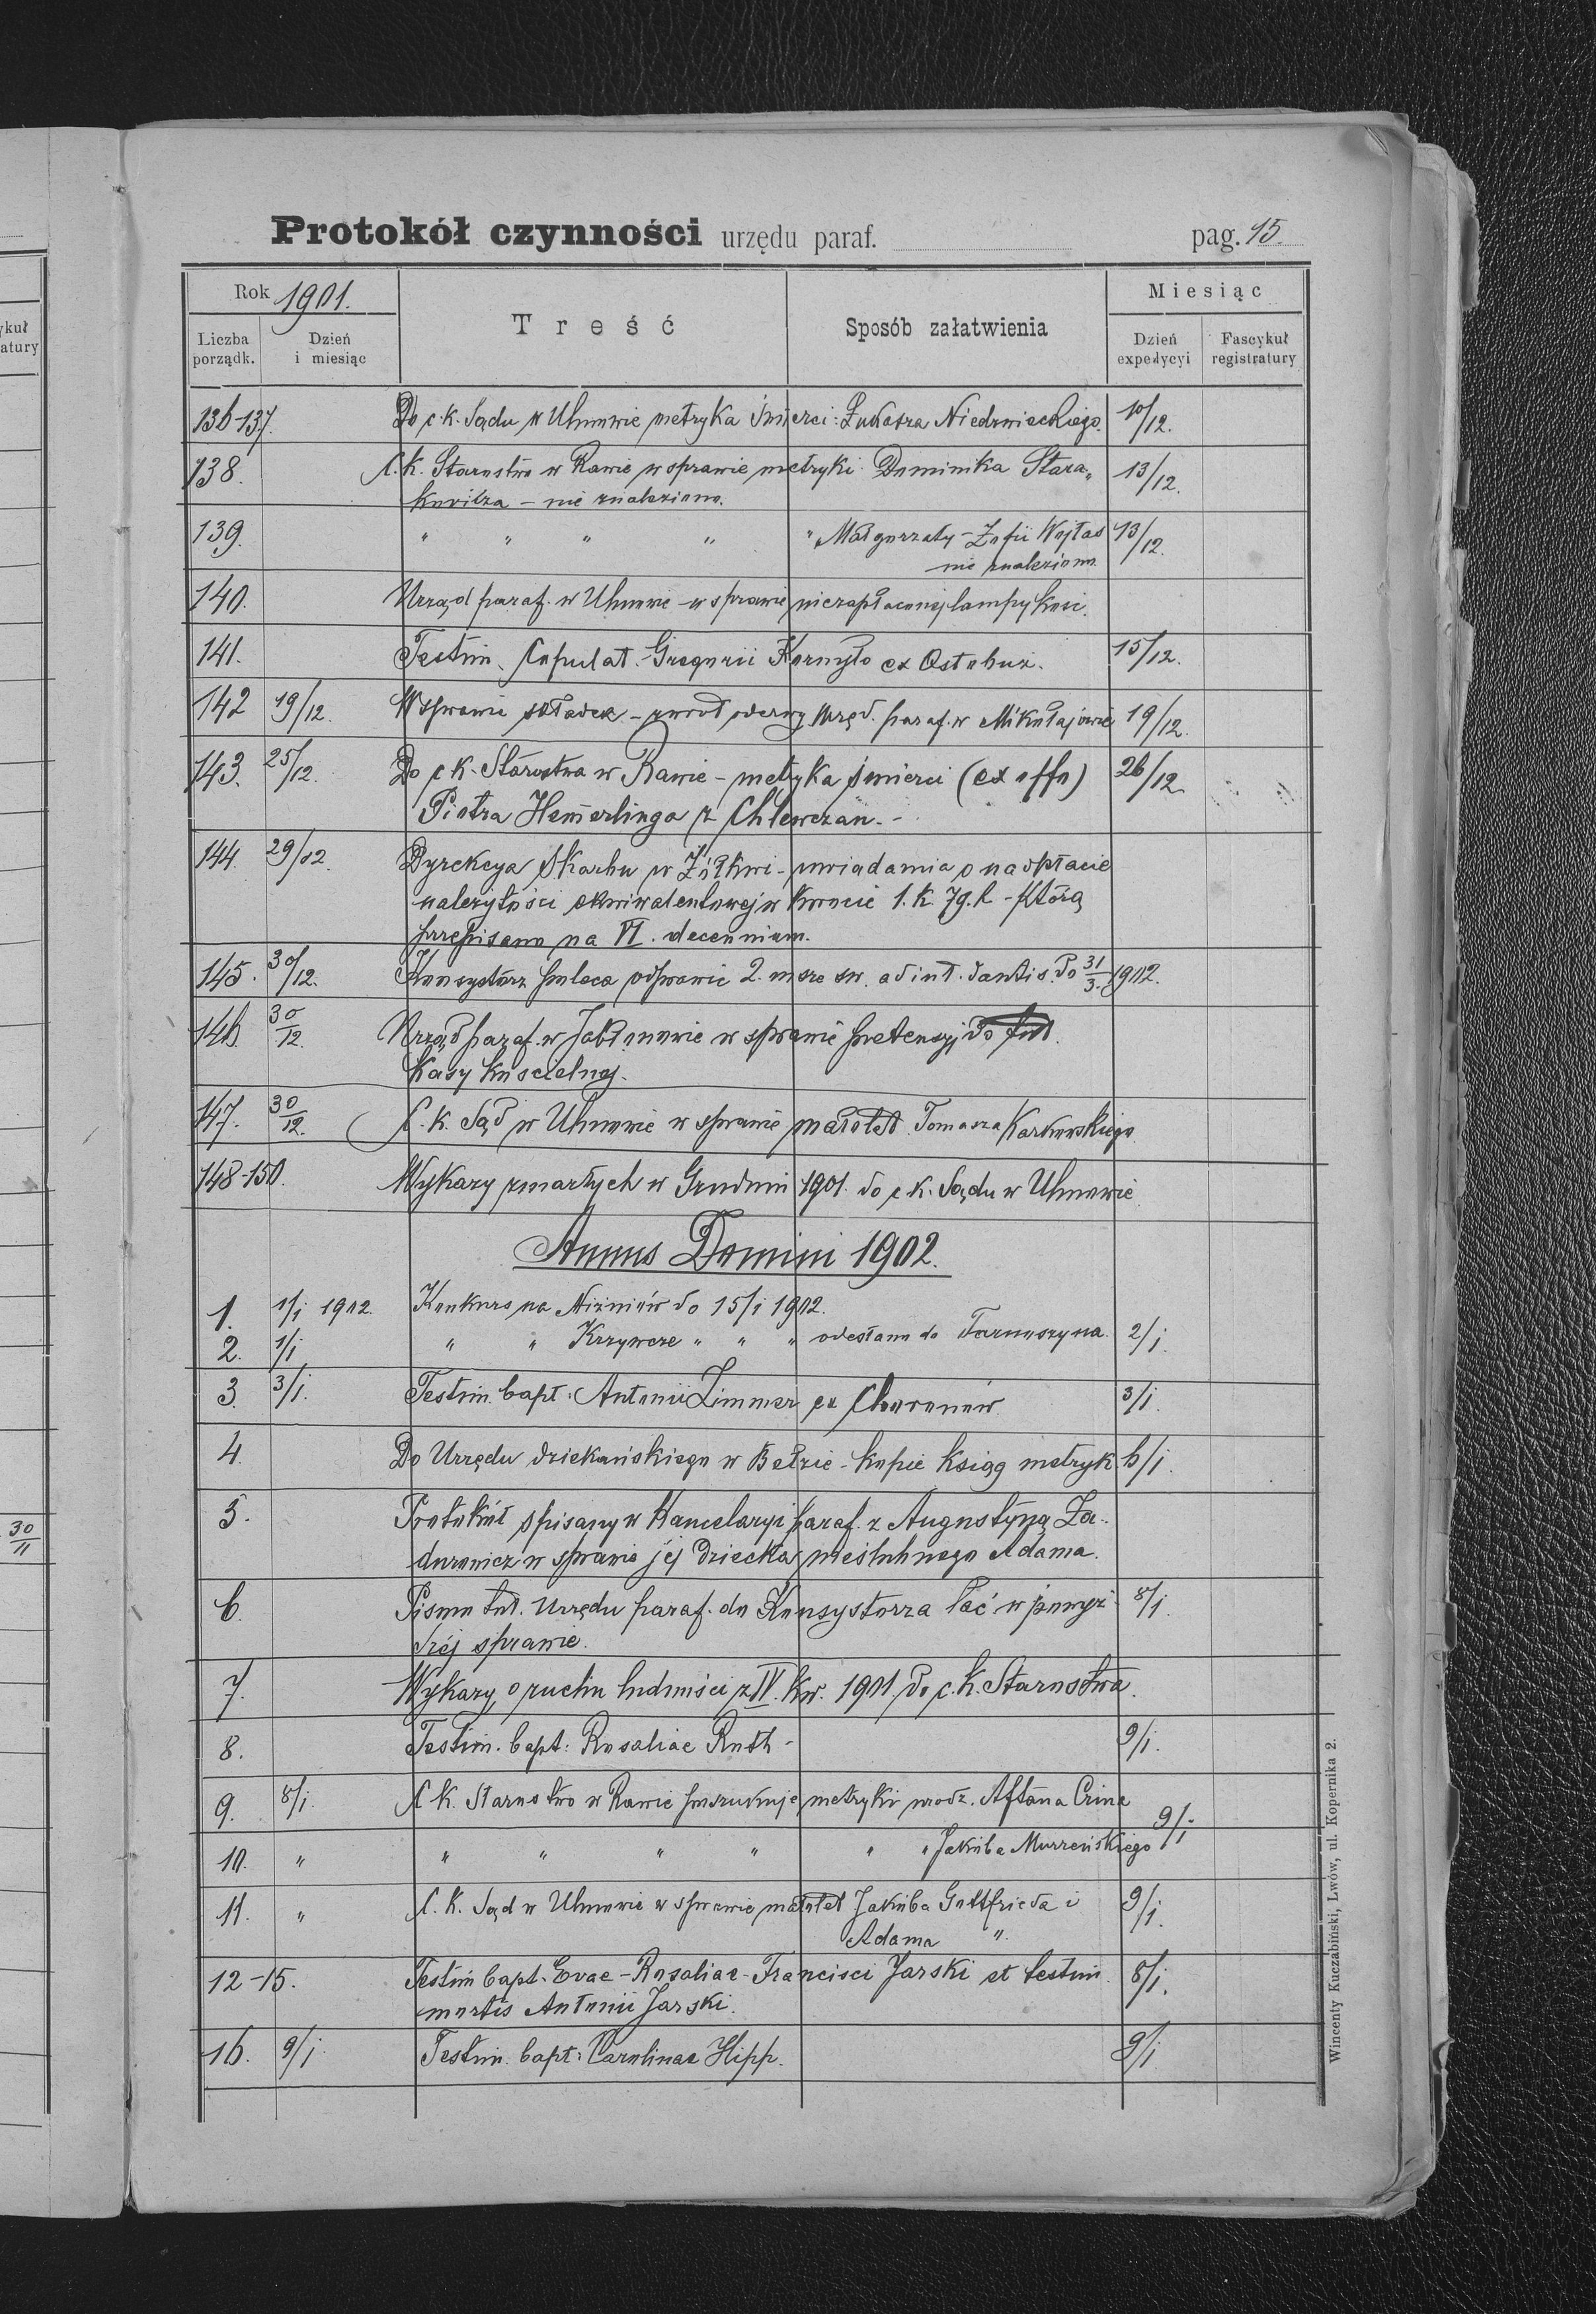 Protokół czynności urzędu paraf. pag. 15.
Rok 1901. Treść Sposób załatwienia Miesiąc
Liczba porządk. Dzień i miesiąc Dzień expedycyi Fascykuł registratury
136-137. Do c. k. Sądu w Uhnowie metryka śmierci: Łukasza Niedzwieckiego. 10/12.
138. C. K. Starostwo w Rawie w sprawie metryki Dominika Stara„ 13/12.
kowicza – nie znaleziono.
139. " " " " " Małgorzaty – Zofii Wojtas 13/12.
nie znaleziono.
140. Urząd paraf. w Uhnowie – w sprawie niezapłaconej lampy kosc.
141. Testim. Copulat. Gregorii Kornyło ex Ostobuż. 15/12.
142 19/12. W sprawie składek – zwrot odezwy Urzęd. paraf. w Mikołajowie 19/12.
143. 25/12. Do c. k. Starostwa w Rawie – metryka śmierci (ex offo) 26/12
Piotra Hemerlinga z Chlewczan. –
144. 29/12. Dyrekcya Skarbu w Żółkwi – uwiadamia o nadpłacie
należytości ekwiwalentowej w kwocie 1. k. 79. h – którą
przepisano na VI. decennium.
145. 30/12. Konsystorz poleca odprawić 2. msze św. ad int. dantis. do 31/3. 1902.
146. 30/12. Urząd paraf. w Jabłonowie w sprawie pretensyj do tut.
Kasy kościelnej.
147. 30/12. C. k. Sąd w Uhnowie w sprawie małolet. Tomasza Karkowskiego.
148-150. Wykazy zmarłych w Grudniu 1901. do c. k. Sądu w Uhnowie.
Annus Domini 1902.
1. 1/I 1902. Konkurs na Niżniów do 15/I 1902.
2. 1/I " " Krzywcze " " " odesłano do Tarnoszyna. 2/I.
3. 3/I. Testim. bapt: Antonii Zimmer ex Choronów 3/I.
4. Do Urzędu dziekańskiego w Bełzie – kopie ksiąg metryk 6/I.
5. Protokół spisany w Kancelaryi paraf. z Augustyną Za-
durowicz w sprawie jej dziecka nieślubnego Adama.
6. Pismo tut. Urzędu paraf. do Konsystorza łać w powyż- 8/I.
széj sprawie.
7. Wykazy o ruchu ludności z IV. kw. 1901. do c. k. Starostwa.
8. Testim. bapt: Rosaliae Roth – 9/I.
9. 8/I. C K. Starostwo w Rawie poszukuje metryki urodz. Aftana Crine
10. " " " " " " " Jakóba Murzeńskiego 9/I
11. " C. K. Sąd w Uhnowie w sprawie małolet Jakóba Gottfrieda i 9/I.
Adama "
12-15. Testim bapt. Evae – Rosaliae – Francisci Jarski et testim. 8/I.
mortis Antonii Jarski.
16. 9/I. Testim. bapt: Carolinae Hipp. 9/I
Wincenty Kuczabiński, Lwów, ul. Kopernika 2.
30/11